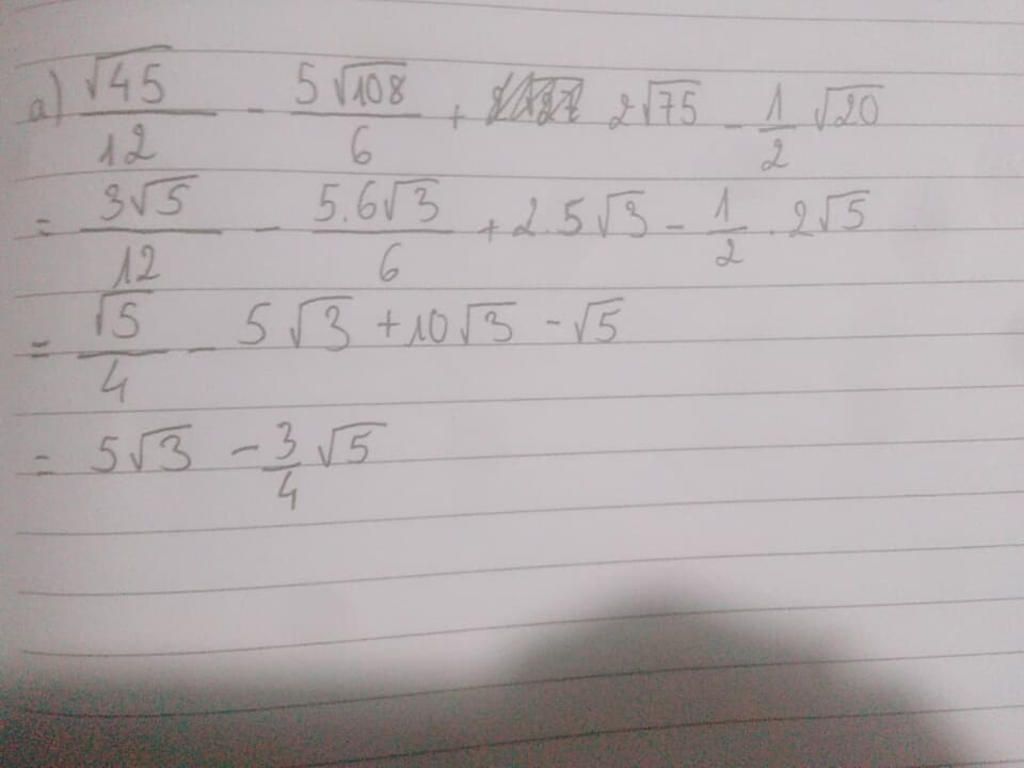 a) √45/12 - 5√108/6 + 2√75 - 1/2 √20
= 3√5/12 - 5.6√3/6 + 2.5√3 - 1/2 . 2√5
= √5/4 - 5√3 + 10√3 - √5
= 5√3 - 3/4 √5